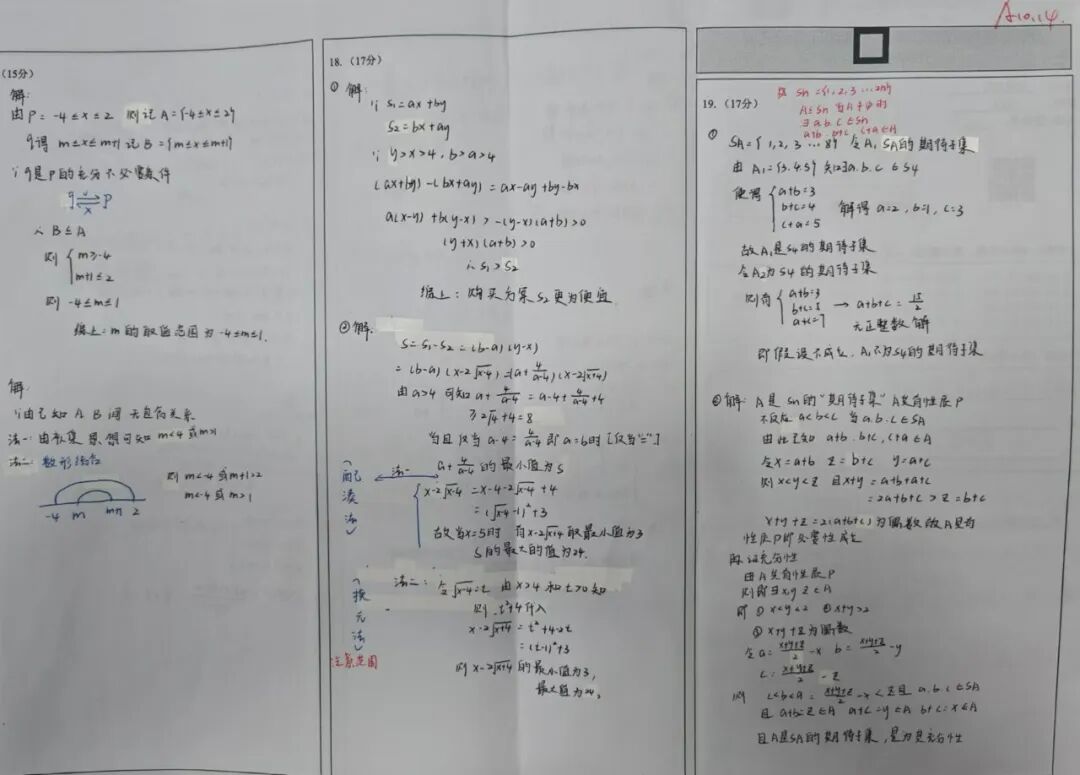 A10.14.
(15分)
解:
由P= -4≤x≤2 则记A={-4≤x≤2}
q得 m≤x≤m+1 记B={m≤x≤m+1}
∵q是P的充分不必要条件
q ⇌ P
∴ B⊆A
则 { m≥-4
m+1≤2
则 -4≤m≤1
综上:m的取值范围为-4≤m≤1.
解:
∵由已知 A B间 无包含关系
法一:由补集思想可知 m<-4或m>1
法二:数形结合
则 m<-4或m+1>2
m<-4或m>1
-4 m m+1 2
18.(17分)
① 解:
∵ S₁=ax+by
S₂=bx+ay
∵ y>x>4,b>a>4
(ax+by)-(bx+ay)=ax-ay+by-bx
a(x-y)+b(y-x)>-(y-x)(a+b)>0
(y+x)(a+b)>0
∴ S₁>S₂
综上:购买方案S₂更为便宜
②解:
S=S₁-S₂=(b-a)(y-x)
=(b-a)(x-2√x-4)=(a+4/a-4)(x-2√x+4)
由a>4 可知 a+4/a-4=a-4+4/a-4+4
≥2√4+4=8
当且仅当 a-4=4/a-4 即a=b时[仅当"="]
法一
a+4/a-4的最小值为5
(配凑法)
{ x-2√x-4=x-4-2√x-4+4
=(√x-4-1)²+3
故当x=5时 有x-2√x+4取最小值为3
S的最大的值为24.
(换元法)
注意范围
法二:令√x-4=t 由x>4 和t>0知
则 t²+4代入
x-2√x+4=t²+4-2t
=(t-1)²+3
则x-2√x+4的最小值为3,
最大值为24,
19.(17分)
Sn={1,2,3…2n}
A⊆Sn 当A≠φ时
∃a.b.c∈Sn
a+b. b+c. c+a∈A
①
SA={1,2,3…8} 令A₁ SA的期待子集
由A₁={3.4.5}知∃a.b.c∈S4
使得 { a+b=3
b+c=4
c+a=5
解得 a=2,b=1,c=3
故A₁是S4的期待子集
令A₂为S4的期待子集
则有 { a+b=3
b+c=5
a+c=7
→ a+b+c=15/2
无正整数解
即假设不成立.A₁不为S4的期待子集
②解:A是Sn的"期待子集"A具有性质P
a<b<c 当a.b.c∈SA
由此已知 a+b.b+c,c+a∈A
令x=a+b z=b+c y=a+c
则x<y<z 且x+y=a+b+a+c
=2a+b+c>z=b+c
x+y+z=2(a+b+c)为偶数故A具有
性质P即必要性成立
证充分性
由A具有性质P
则即∃x,y,z∈A
即①x<y<z ②x+y>z
③x+y+z为偶数
令a=x+y+z/2-x b=x+y+z/2-y
c=x+y+z/2-z
则 c<b<a=x+y+z/2-x<z且a.b.c∈SA
且a+b=z∈A a+c=y∈A b+c=x∈A
且A是SA的期待子集,是为具充分性